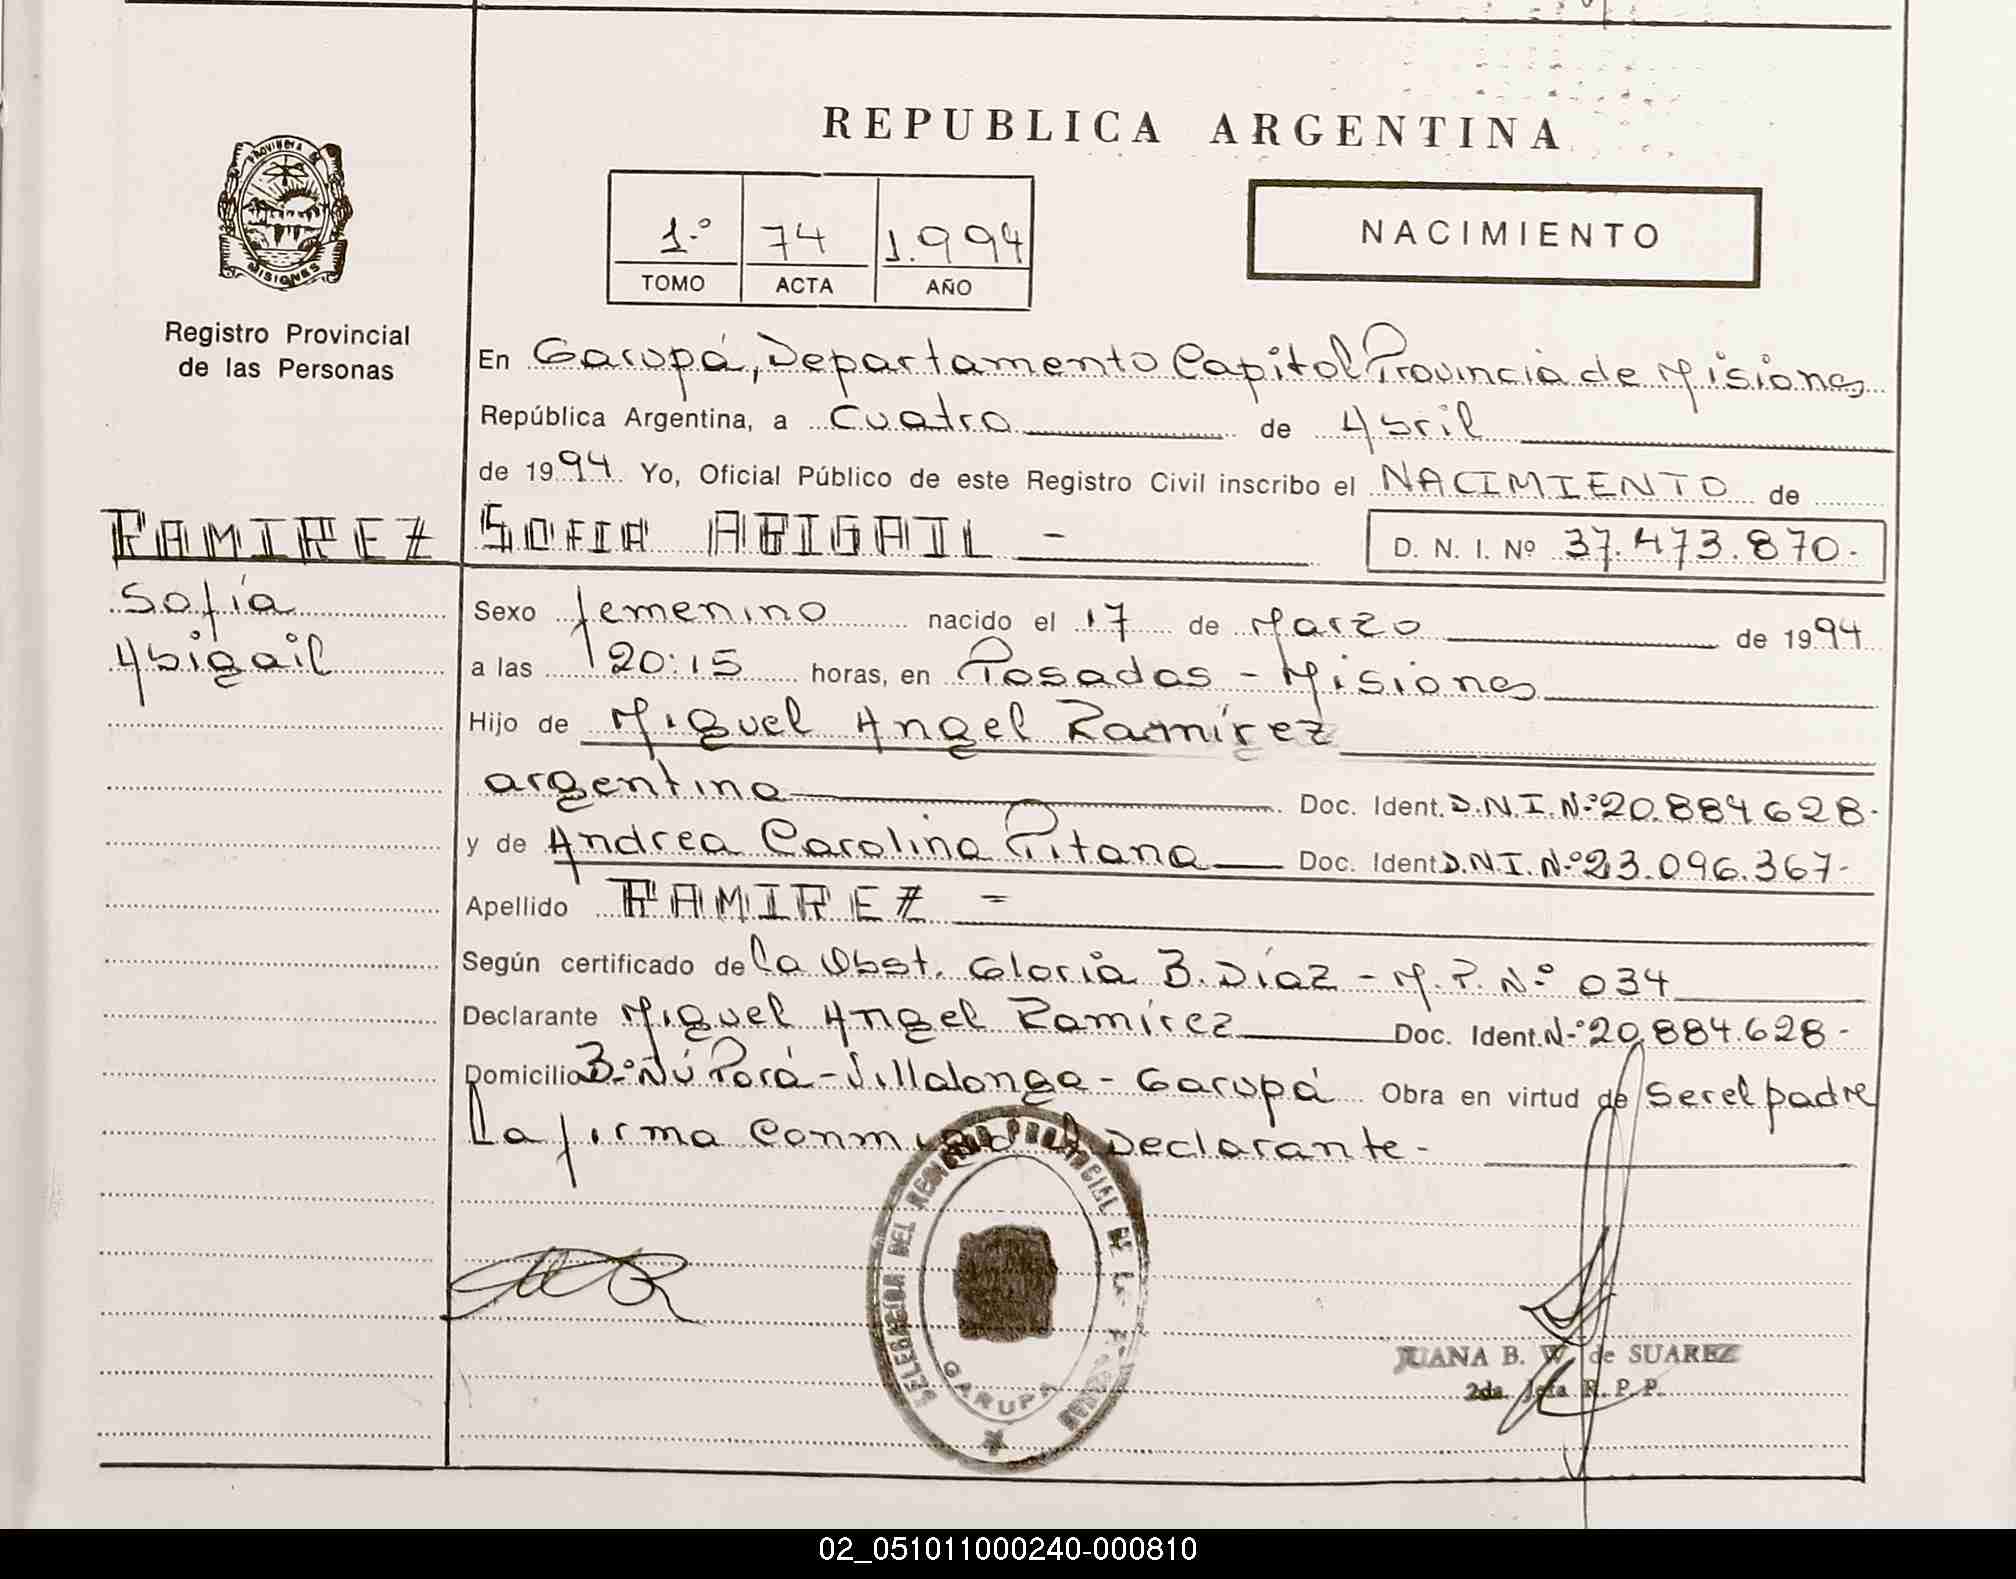 REPUBLICA ARGENTINA
PROVINCIA DE
MISIONES
Registro Provincial
de las Personas
1.º 74 1.994
TOMO ACTA AÑO
NACIMIENTO
En Garupá, Departamento Capital Provincia de Misiones
República Argentina, a cuatro de Abril
de 1994 Yo, Oficial Público de este Registro Civil inscribo el NACIMIENTO de
RAMIREZ SOFIA ABIGAIL - D. N. I. Nº 37.473.870.-
Sofía
Abigail
Sexo femenino nacido el 17 de Marzo de 1994
a las 20:15 horas, en Posadas - Misiones
Hijo de Miguel Angel Ramírez
argentina Doc. Ident. D.N.I.N.º 20.884628.
y de Andrea Carolina Pitana Doc. Ident D.N.I. N.º 23.096.367-
Apellido RAMIREZ =
Según certificado de la Obst. Gloria B. Díaz - M.P. N.º 034
Declarante Miguel Angel Ramírez Doc. Ident. N.º 20.884.628-
Domicilio B.º Ñú Porá - Villalonga - Garupá Obra en virtud de ser el padre
La firma conmigo el Declarante.-
DELEGACION DEL REGISTRO PROVINCIAL DE LAS PERSONAS
GARUPA
JUANA B. W. de SUAREZ
2da. Jefa R. P. P.
02_051011000240-000810